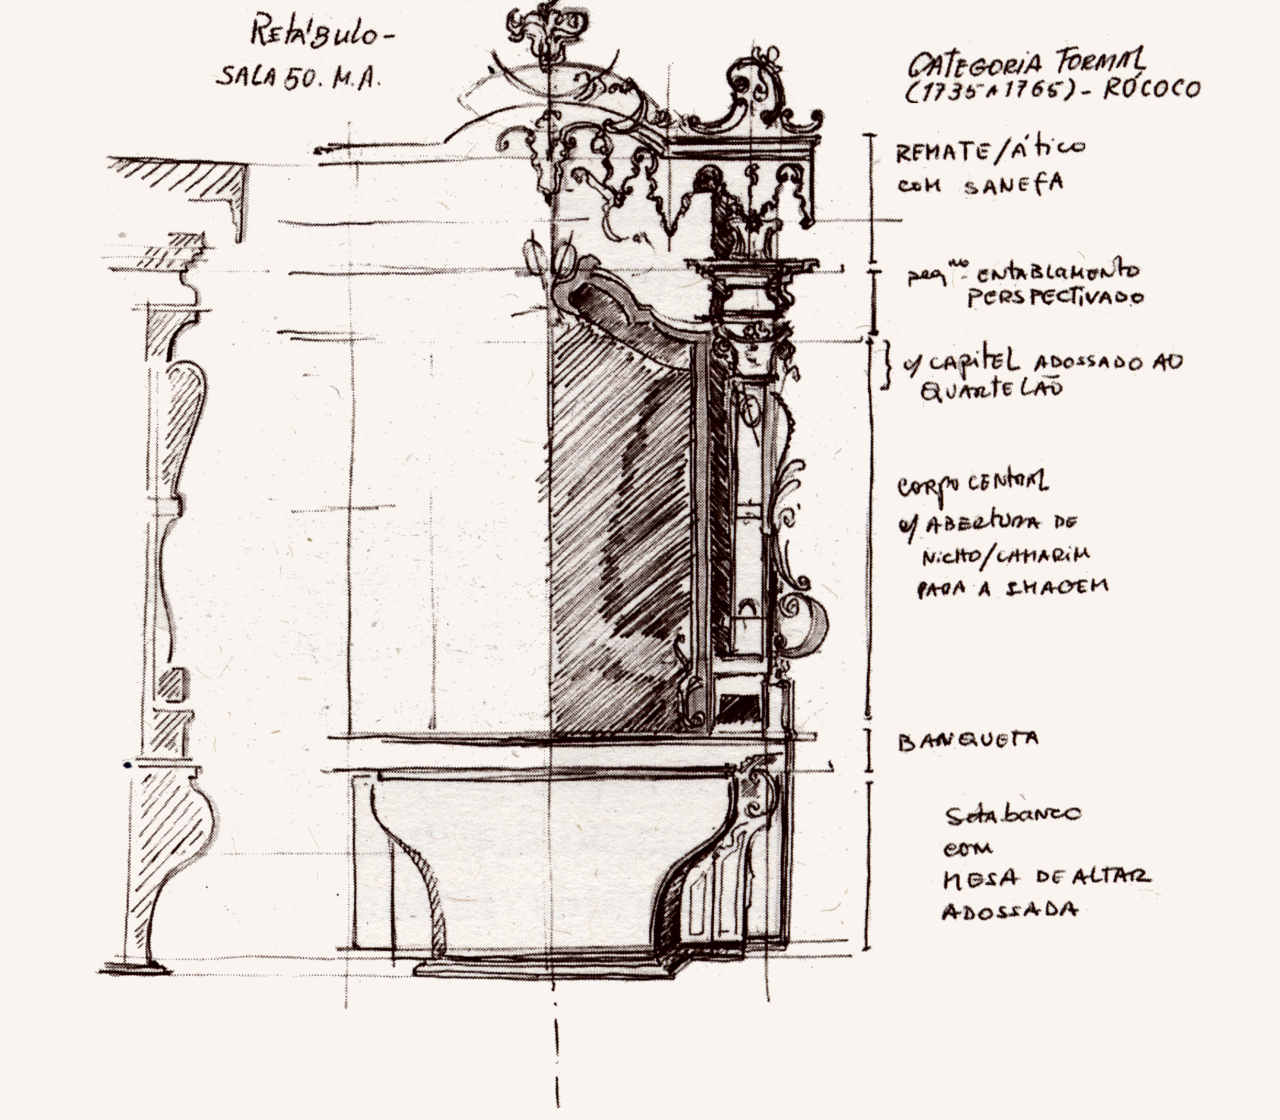 Retábulo -
SALA 50. M.A.
CATEGORIA FORMAL
(1735 A 1765) - RÓCOCO
REMATE/ÁTICO
COM SANEFA
peqno. ENTABLAMENTO
PERSPECTIVADO
c/ CAPITEL ADOSSADO AO
QUARTELÃO
CORPO CENTRAL
c/ ABERTURA DE
NICHO/CAMARIM
PARA A IMAGEM
BANQUETA
Sotabanco
COM
MESA DE ALTAR
ADOSSADA